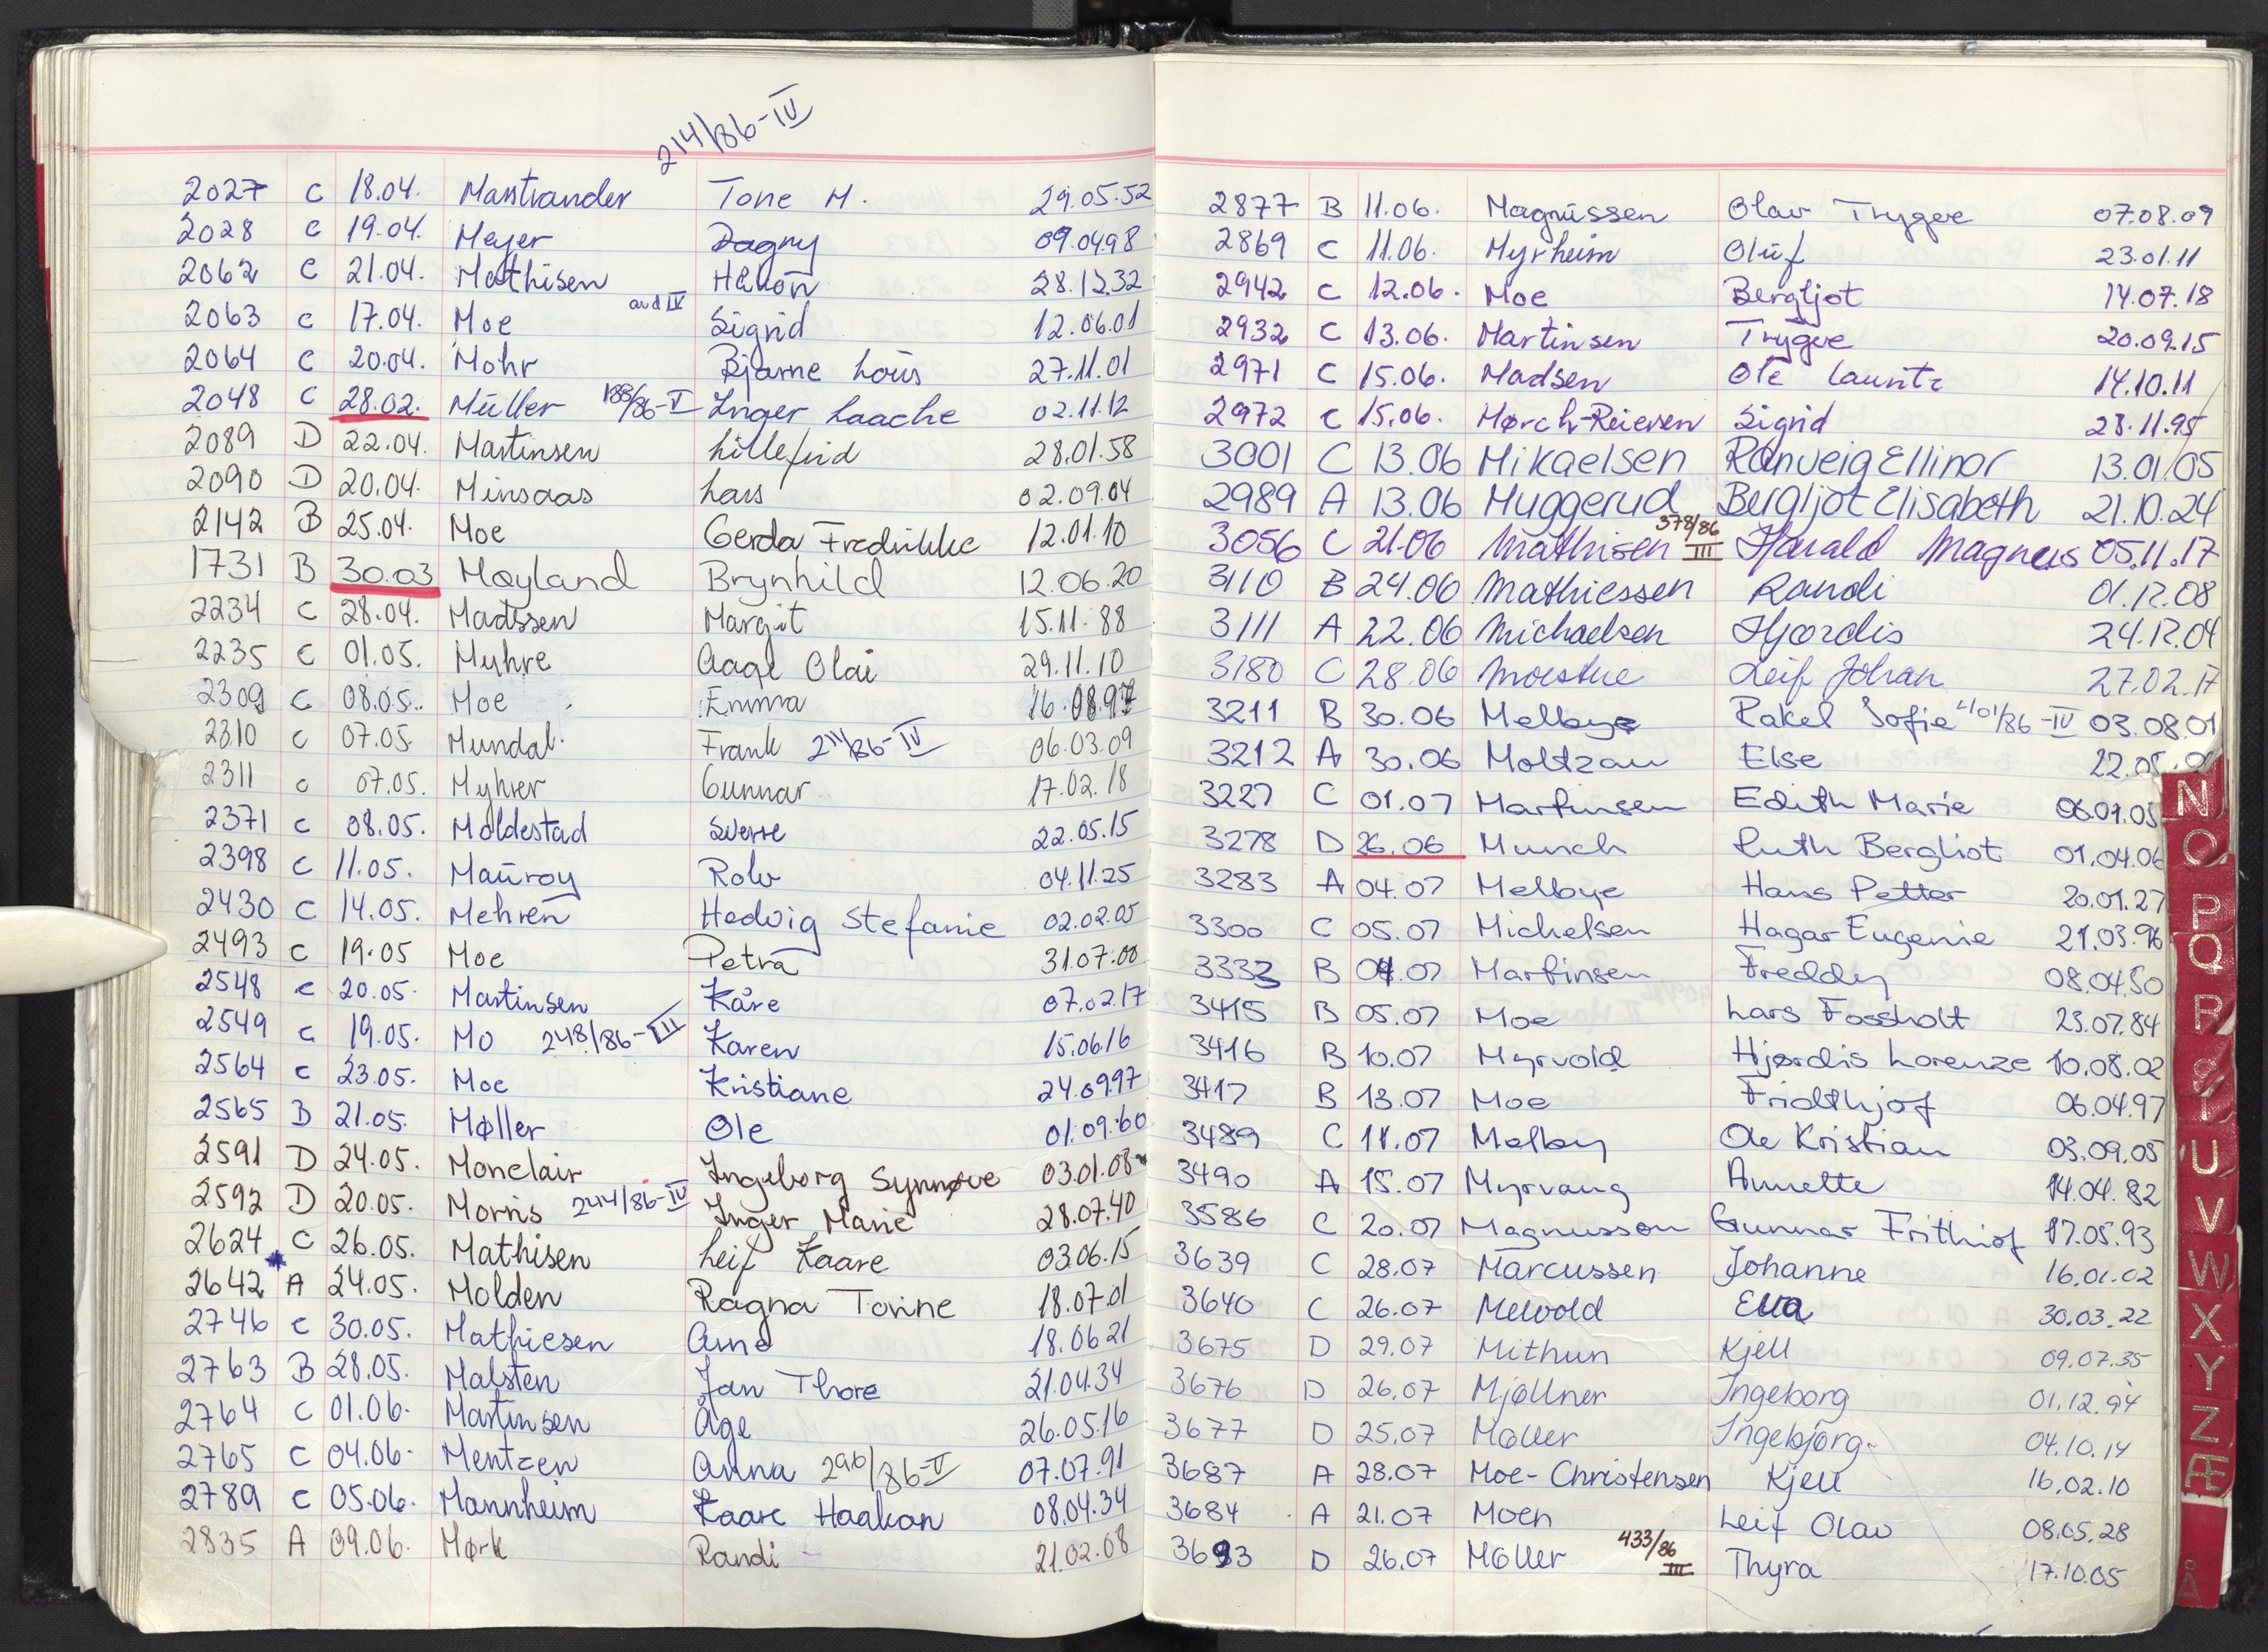 214/86-IV
2027 C 18.04. Marstrander Tone M. 29.05.52
2028 C 19.04. Meyer Dagny 09.04.98
2062 C 21.04. Mathisen Håkon 28.12.32
2063 C 17.04. Moe avd IV Sigrid 12.06.01
2064 C 20.04. Mohr Bjarne Louis 27.11.01
2048 C 28.02. Müller 188/86-V Inger Laache 02.11.12
2089 D 22.04. Martinsen Lillefrid 28.01.58
2090 D 20.04. Minsaas Lars 02.09.04
2142 B 25.04. Moe Gerda Fredrikke 12.01.10
1731 B 30.03 Møyland Brynhild 12.06.20
2234 C 28.04. Madssen Margit 15.11.88
2235 C 01.05. Myhre Aage Olai 29.11.10
2309 C 08.05. Moe Emma 16.08.97
2310 C 07.05 Mundal Frank 211/86-IV 06.03.09
2311 C 07.05. Myhrer Gunnar 17.02.18
2371 C 08.05. Moldestad Sverre 22.05.15
2398 C 11.05. Mauroy Rolv 04.11.25
2430 C 14.05. Mehren Hedvig Stefanie 02.02.05
2493 C 19.05 Moe Petra 31.07.00
2548 C 20.05. Martinsen Kåre 07.02.17
2549 C 19.05. Mo 248/86-III Karen 15.06.16
2564 C 23.05. Moe Kristiane 24.09.97
2565 B 21.05. Møller Ole 01.09.60
2591 D 24.05. Monclair Ingeborg Synnøve 03.01.08
2592 D 20.05. Morris 244/86-IV Inger Marie 28.07.40
2624 C 26.05. Mathisen Leif Kaare 03.06.15
2642 A 24.05. Molden Ragna Torine 18.07.01
2746 C 30.05. Mathiesen Arne 18.06.21
2763 B 28.05. Malsten Jan Thore 21.04.34
2764 C 01.06. Martinsen Åge 26.05.16
2765 C 04.06. Mentzen Anna 296/86-V 07.07.91
2789 C 05.06. Mannheim Kaare Haakon 08.04.34
2835 A 09.06. Mørk Randi 21.02.08
2877 B 11.06. Magnussen Olav Trygve 07.08.09
2869 C 11.06. Myrheim Oluf 23.01.11
2942 C 12.06. Moe Bergljot 14.07.18
2932 C 13.06. Martinsen Trygve 20.09.15
2971 C 15.06. Madsen Ole Lauritz 14.10.11
2972 C 15.06. Mørch-Reiersen Sigrid 28.11.95
3001 C 13.06 Mikaelsen Ranveig Ellinor 13.01.05
2989 A 13.06 Muggerud Bergljot Elisabeth 21.10.24
3056 C 21.06 Mathisen 378/86 III Harald Magnus 05.11.17
3110 B 24.06 Mathiessen Randi 01.12.08
3111 A 22.06 Michaelsen Hjørdis 24.12.04
3180 C 28.06 Moestue Leif Johan 27.02.17
3211 B 30.06 Melbye Rakel Sofie 401/86-IV 03.08.01
3212 A 30.06 Moltzau Else 22.05.
3227 C 01.07 Martinsen Edith Marie 06.01.05
3278 D 26.06 Munch Ruth Bergliot 01.04.06
3283 A 04.07 Melbye Hans Petter 20.01.27
3300 C 05.07 Michelsen Hagar Eugenie 21.03.96
3333 B 04.07 Martinsen Freddy 08.04.50
3415 B 05.07 Moe Lars Fossholt 23.07.84
3416 B 10.07 Myrvold Hjørdis Lorenze 10.08.02
3417 B 13.07 Moe Fridthjof 06.04.97
3489 C 11.07 Melby Ole Kristian 03.09.05
3490 A 15.07 Myrvang Annette 14.04.82
3586 C 20.07 Magnusson Gunnar Frithiof 17.05.93
3639 C 28.07 Marcussen Johanne 16.01.02
3640 C 26.07 Mevold Eva 30.03.22
3675 D 29.07 Mithun Kjell 09.07.35
3676 D 26.07 Mjøllner Ingeborg 01.12.94
3677 D 25.07 Møller Ingebjørg 04.10.14
3687 A 28.07 Moe-Christensen Kjell 16.02.10
3684 A 21.07 Moen Leif Olav 08.05.28
3693 D 26.07 Møller 433/86 III Thyra 17.10.05
N
O
P
Q
R
S
T
U
V
W
X
Y
Z
Æ
Å